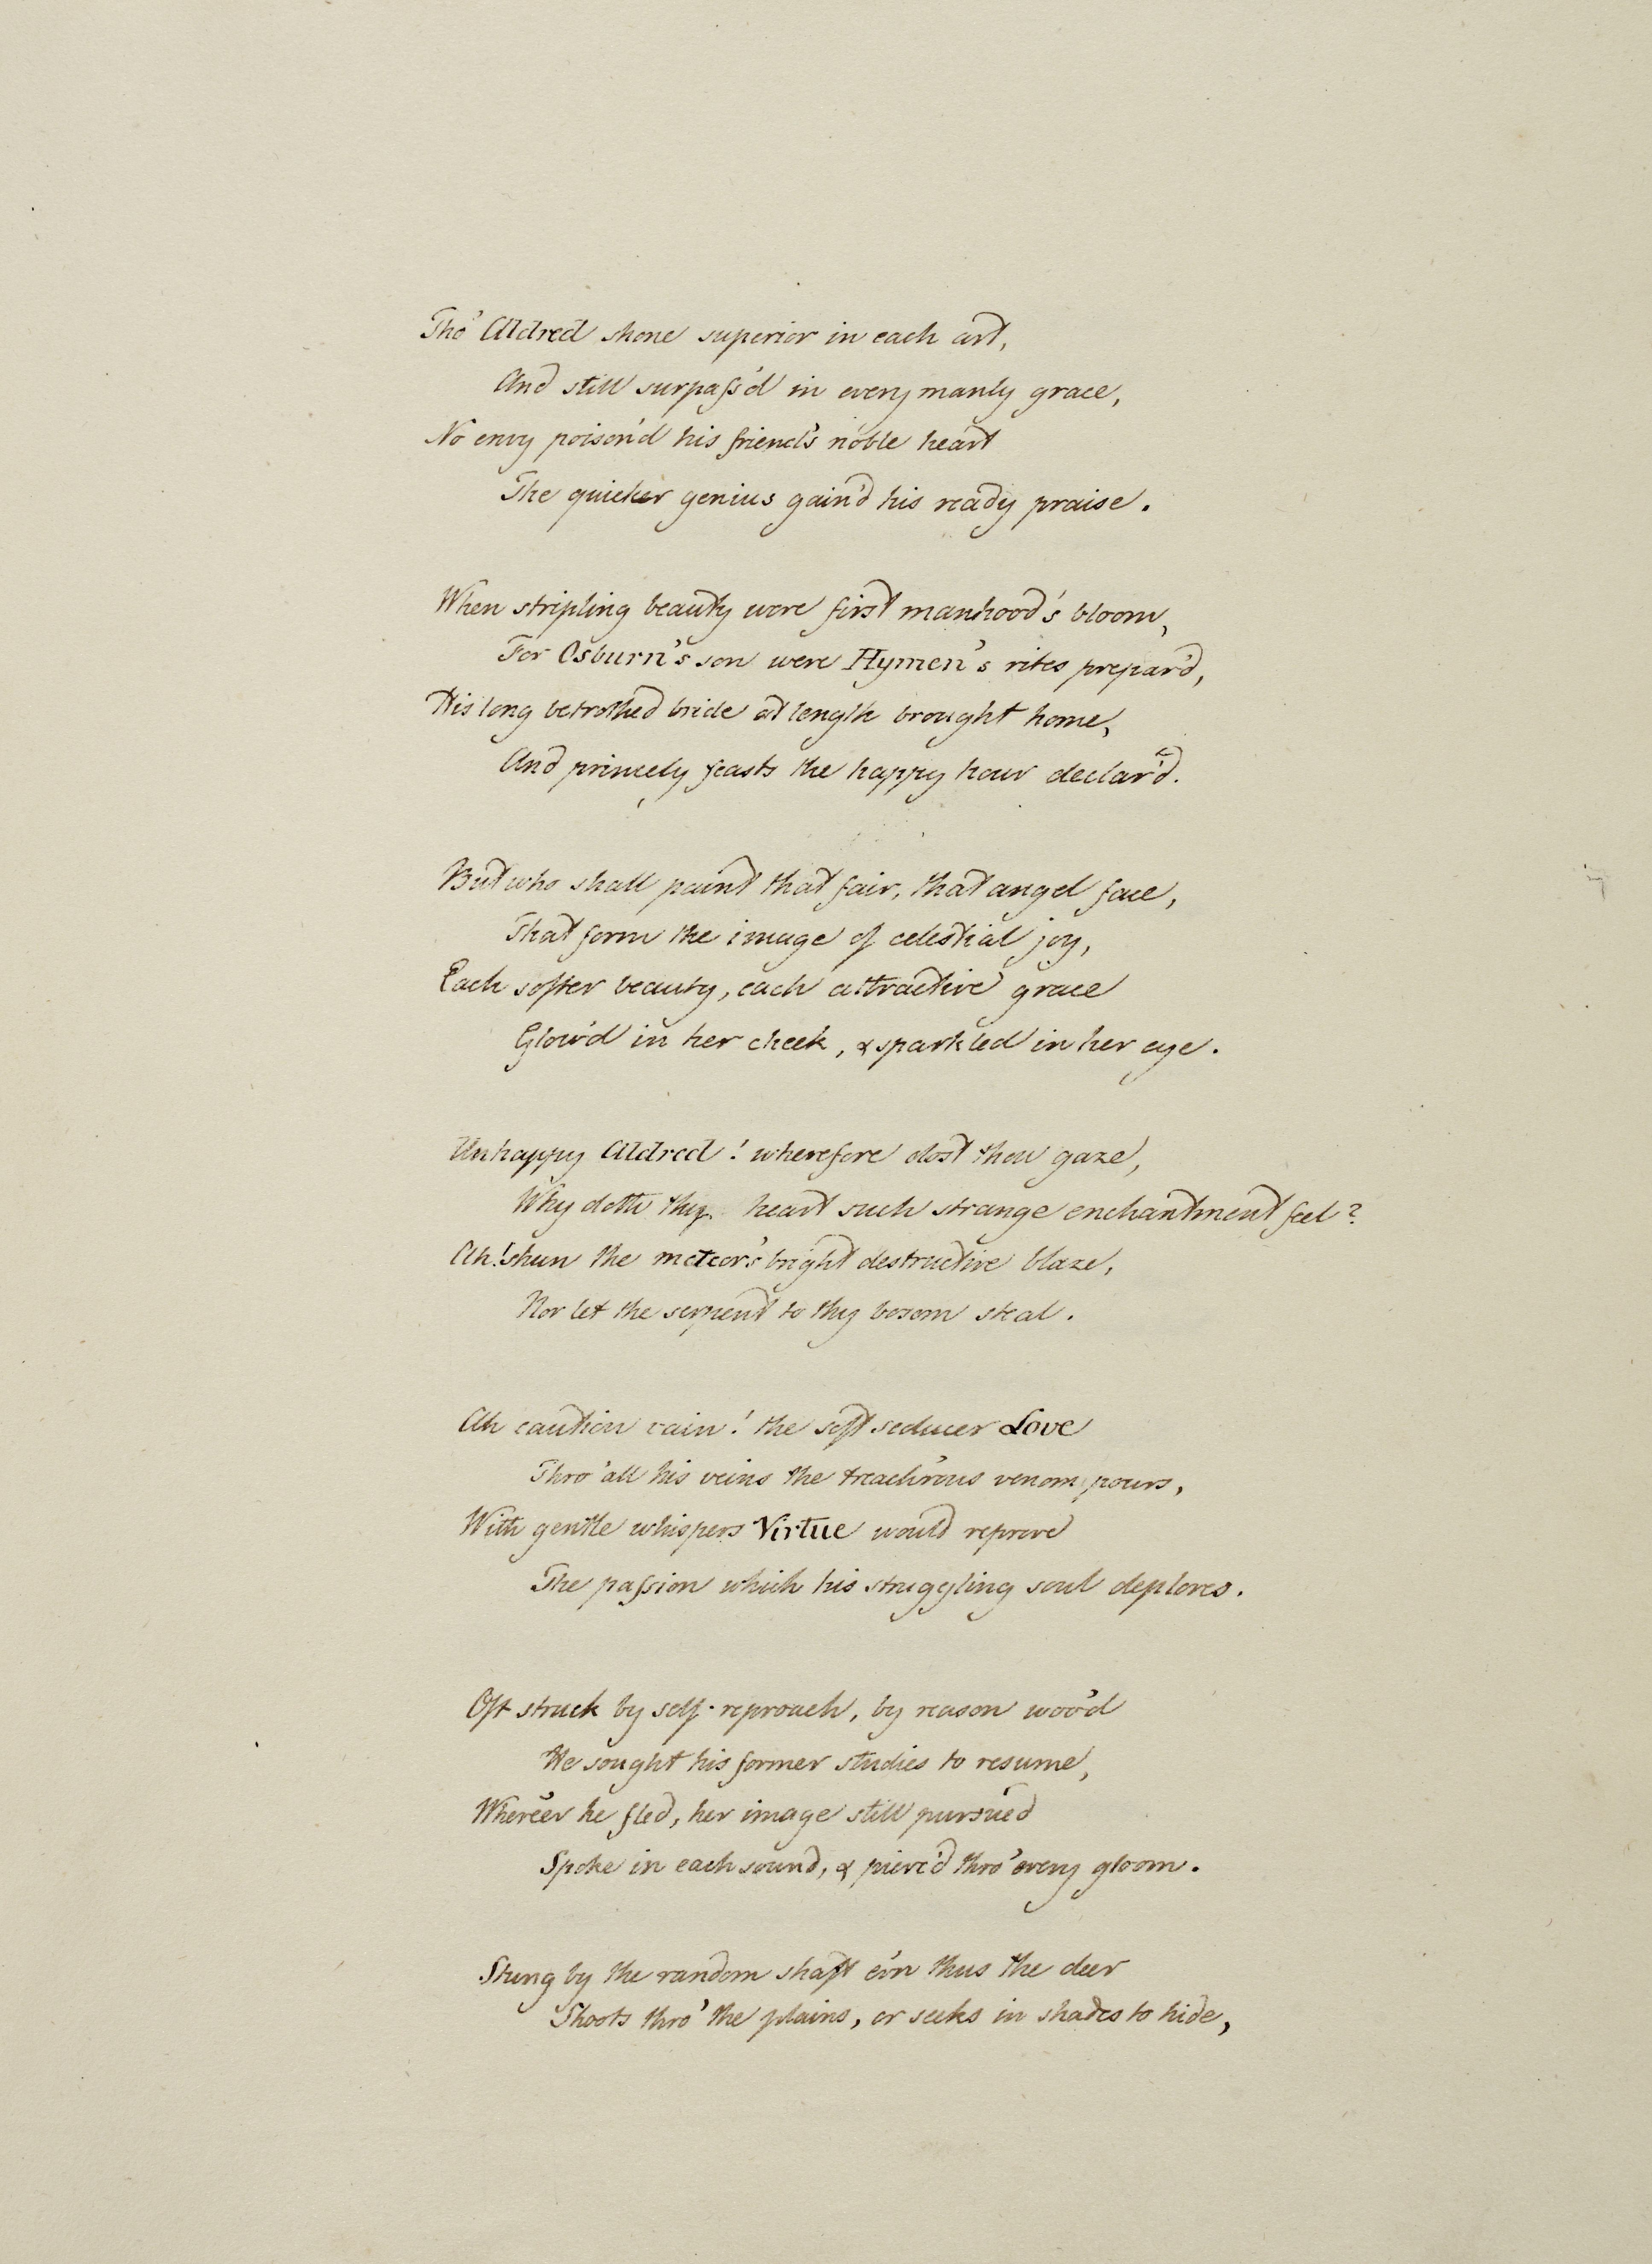 Tho' Aldred shone superior in each art,
And still surpass'd in every manly grace,
No envy poison'd his friend's noble heart
The quicker genius gain'd his ready praise.
When stripling beauty wore first manhood's bloom,
For Osburn's son were Hymen's rites prepar'd,
His long betrothed bride at length brought home,
And princely feasts the happy hour declar'd.
But who shall paint that fair, that angel face,
That form the image of celestial joy,
Each softer beauty, each attractive grace
Glow'd in her cheek, & sparkled in her eye.
Unhappy Aldred! wherefore dost thou gaze,
Why doth thy heart such strange enchantment feel?
Ah! shun the meteor's bright destructive blaze,
Nor let the serpent to thy bosom steal.
Ah caution vain! the soft seducer Love
Thro' all his veins the treach'rous venom pours,
With gentle whispers Virtue would reprove
The passion which his struggling soul deplores.
Oft struck by self-reproach, by reason woo'd
He sought his former studies to resume,
Where'er he fled, her image still pursued
Spoke in each sound, & pierc'd thro' every gloom.
Stung by the random shaft e'en thus the deer
Shoots thro' the plains, or seeks in shades to hide,